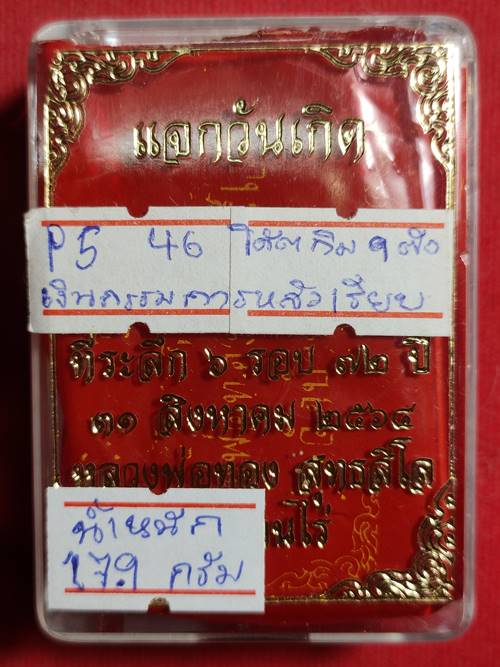 แจกวันเกิด
P5 46 โค๊ต กิม ๑ ตัว
เงินกรรมการหลังเรียบ
ที่ระลึก ๖ รอบ ๗๒ ปี
๓๑ สิงหาคม ๒๕๖๔
หลวงพ่อทอง สุทธสีโล
น้ำหนัก
17.9 กรัม